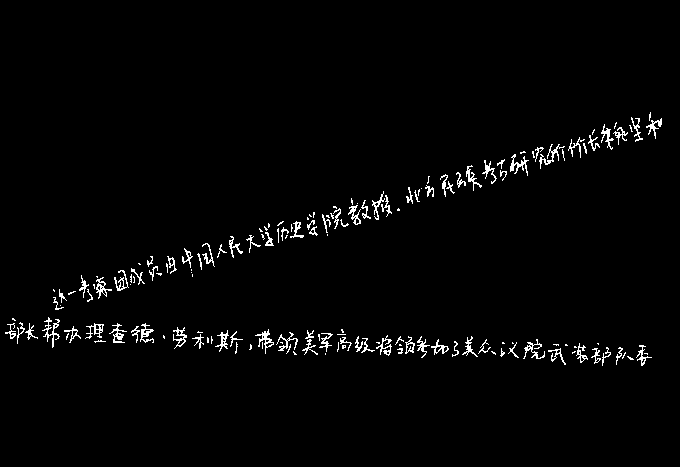 这一考察团成员由中国人民大学历史学院教授、北方民族考古研究所所长魏坚和
部长帮办理查德·劳利斯,带领美军高级将领参加了美众议院武装部队委